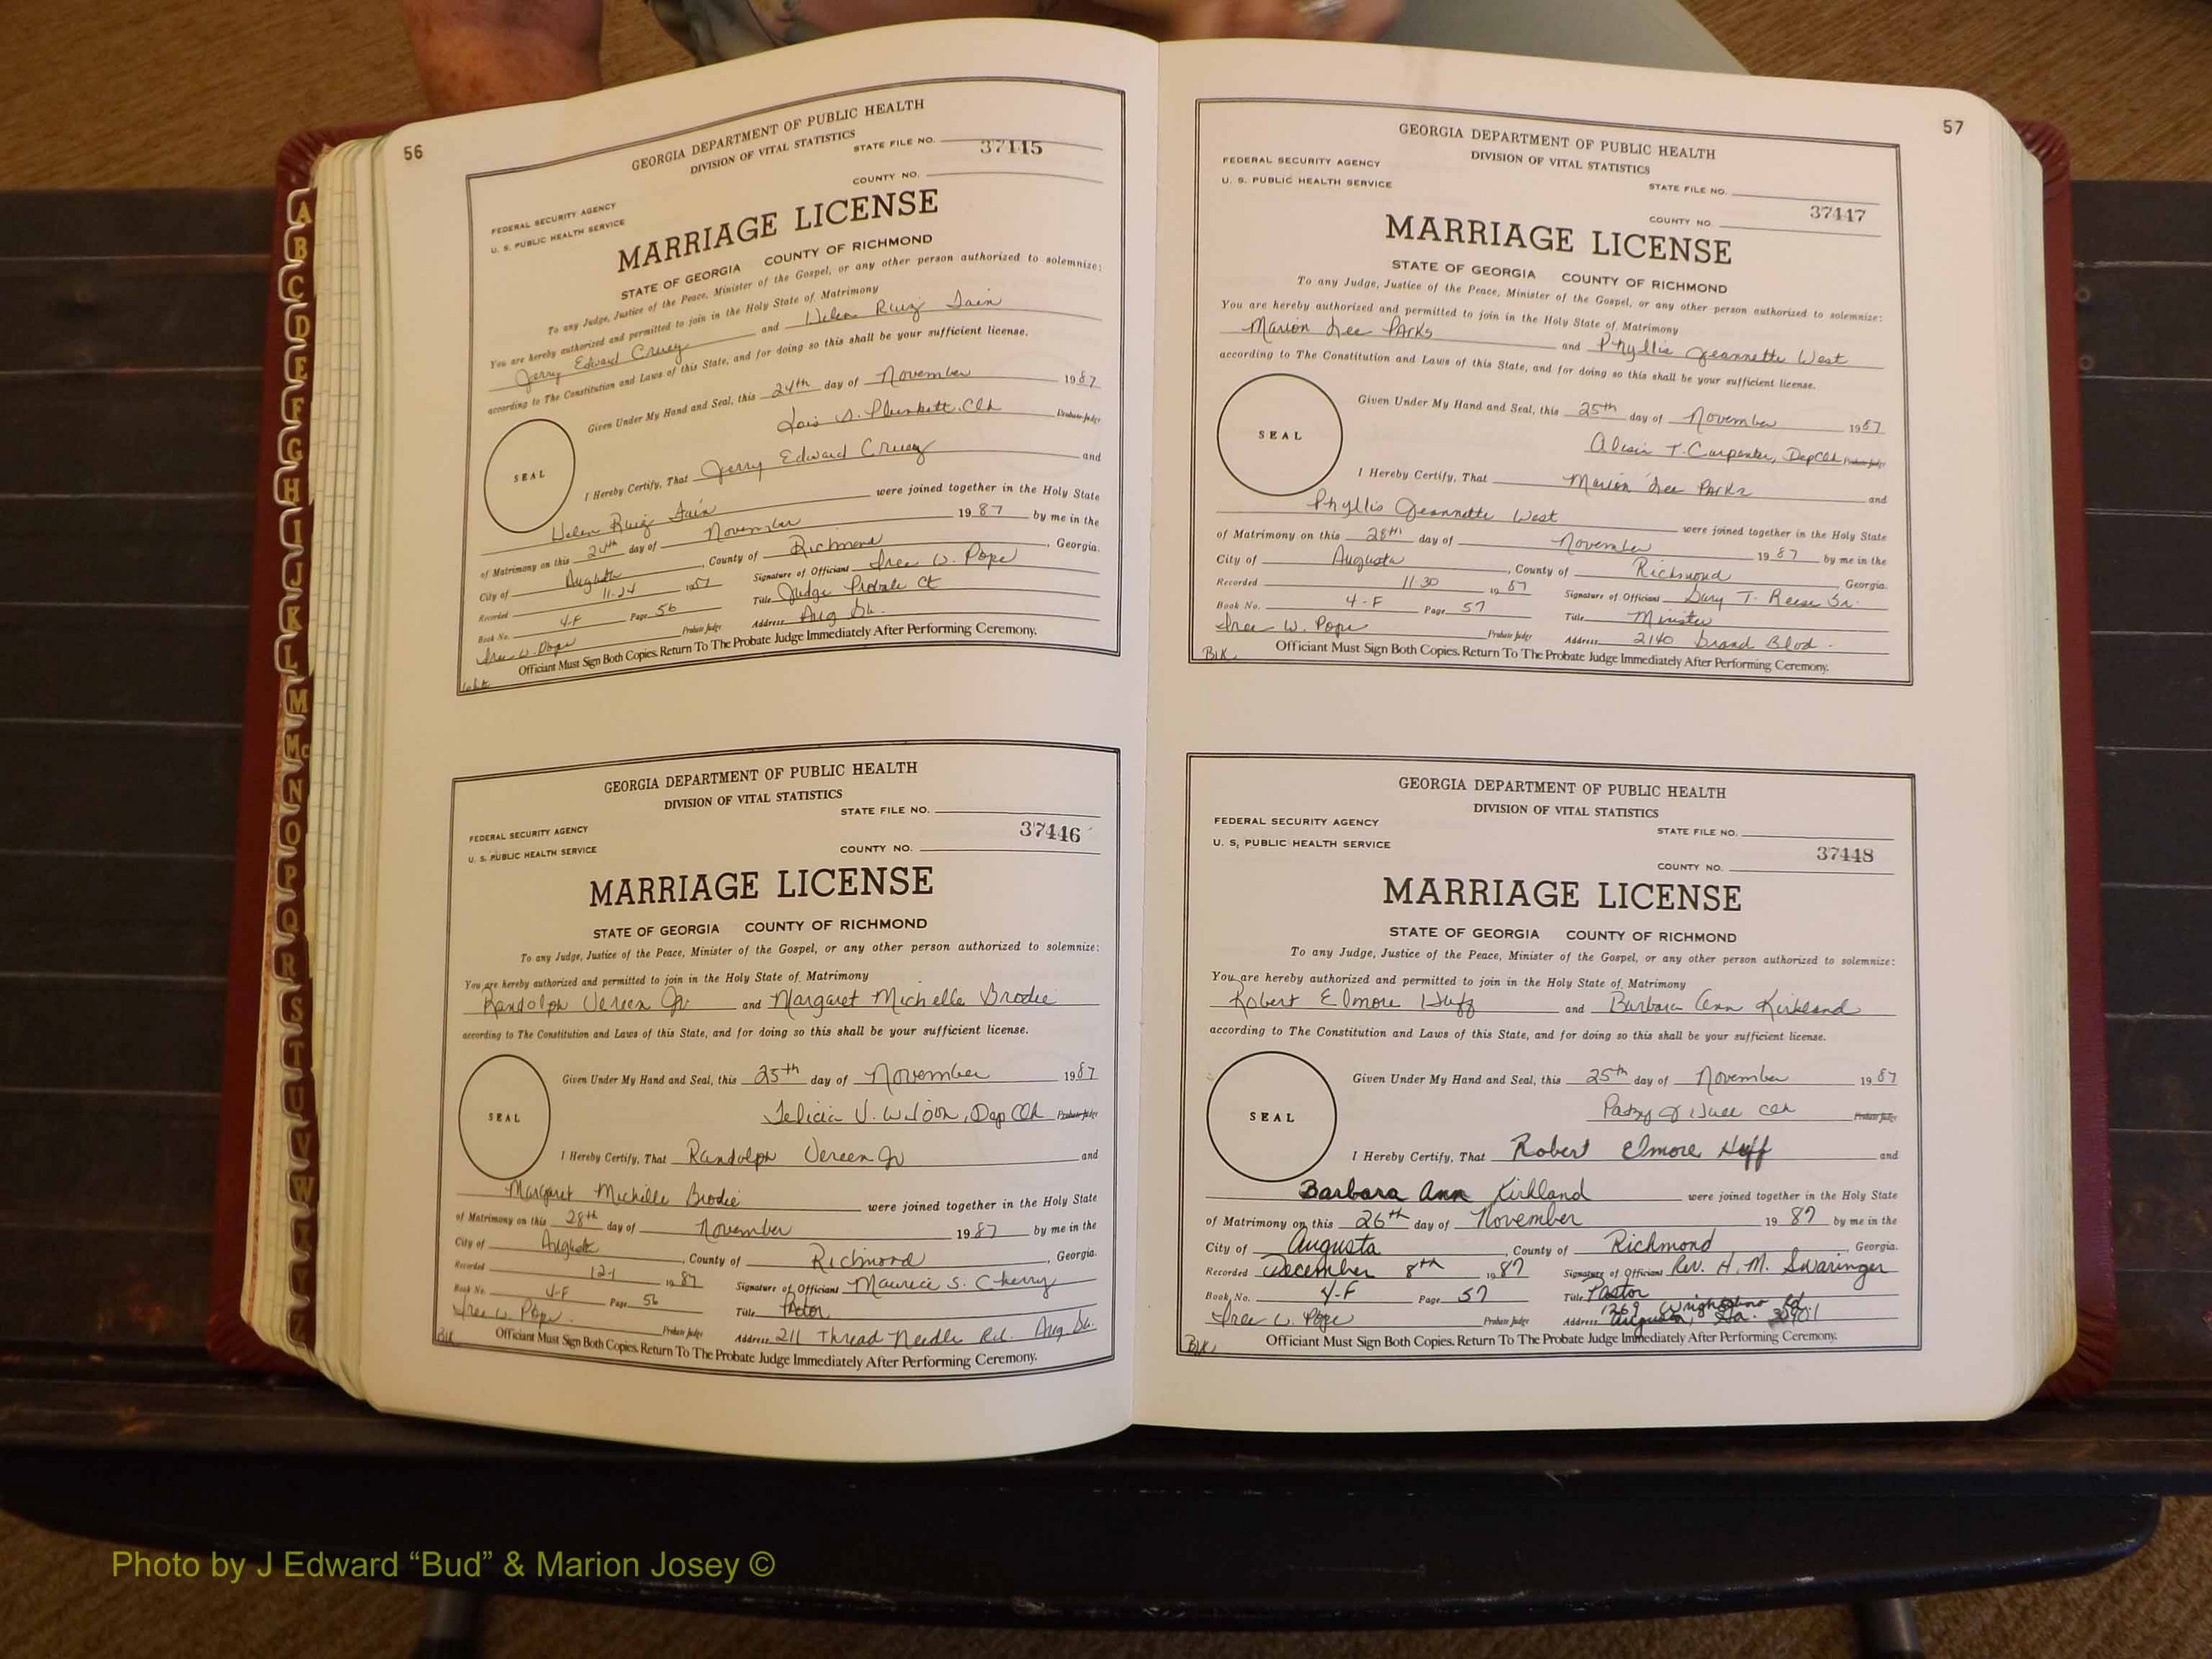 56
GEORGIA DEPARTMENT OF PUBLIC HEALTH
DIVISION OF VITAL STATISTICS
STATE FILE NO.
37445
COUNTY NO.
FEDERAL SECURITY AGENCY
U. S. PUBLIC HEALTH SERVICE
MARRIAGE LICENSE
STATE OF GEORGIA COUNTY OF RICHMOND
To any Judge, Justice of the Peace, Minister of the Gospel, or any other person authorized to solemnize:
You are hereby authorized and permitted to join in the Holy State of Matrimony
Jerry Edward and Helen Ruiz
according to The Constitution and Laws of this State, and for doing so this shall be your sufficient license.
Given Under My Hand and Seal, this 24th day of November 1987
Lois S. Plunkett, Clk Probate Judge
SEAL
I Hereby Certify, That Jerry Edward and
Helen Ruiz were joined together in the Holy State
of Matrimony on this 24th day of November 1987 by me in the
City of Augusta, County of Richmond, Georgia.
Recorded 11-24 1987 Signature of Officiant W. Pope
Book No. 4-F Page 56 Title Judge Probate Ct
W. Pope Probate Judge Address Aug Ga.
Officiant Must Sign Both Copies. Return To The Probate Judge Immediately After Performing Ceremony.
GEORGIA DEPARTMENT OF PUBLIC HEALTH
DIVISION OF VITAL STATISTICS
STATE FILE NO.
37446
FEDERAL SECURITY AGENCY
U. S. PUBLIC HEALTH SERVICE
COUNTY NO.
MARRIAGE LICENSE
STATE OF GEORGIA COUNTY OF RICHMOND
To any Judge, Justice of the Peace, Minister of the Gospel, or any other person authorized to solemnize:
You are hereby authorized and permitted to join in the Holy State of Matrimony
Randolph Vereen Jr and Margaret Michelle Brodie
according to The Constitution and Laws of this State, and for doing so this shall be your sufficient license.
Given Under My Hand and Seal, this 25th day of November 1987
Felicia V. Wilson, Dep Clk Probate Judge
SEAL
I Hereby Certify, That Randolph Vereen Jr and
Margaret Michelle Brodie were joined together in the Holy State
of Matrimony on this 28th day of November 1987 by me in the
City of Augusta, County of Richmond, Georgia.
Recorded 12-1 1987 Signature of Officiant Maurice S. Cherry
Book No. 4-F Page 56 Title Pastor
W. Pope Probate Judge Address 211 Thread Needle Rd. Aug. Ga.
Blk
Officiant Must Sign Both Copies. Return To The Probate Judge Immediately After Performing Ceremony.
57
GEORGIA DEPARTMENT OF PUBLIC HEALTH
DIVISION OF VITAL STATISTICS
FEDERAL SECURITY AGENCY
U. S. PUBLIC HEALTH SERVICE
STATE FILE NO.
37447
COUNTY NO.
MARRIAGE LICENSE
STATE OF GEORGIA COUNTY OF RICHMOND
To any Judge, Justice of the Peace, Minister of the Gospel, or any other person authorized to solemnize:
You are hereby authorized and permitted to join in the Holy State of Matrimony
Marion Lee Parks and Phyllis Jeannette West
according to The Constitution and Laws of this State, and for doing so this shall be your sufficient license.
Given Under My Hand and Seal, this 25th day of November 1987
T. Carpenter, Dep Clk Probate Judge
SEAL
I Hereby Certify, That Marion Lee Parks and
Phyllis Jeannette West were joined together in the Holy State
of Matrimony on this 28th day of November 1987 by me in the
City of Augusta, County of Richmond, Georgia.
Recorded 11-30 1987 Signature of Officiant Gary T. Reese Sr.
Book No. 4-F Page 57 Title Minister
W. Pope Probate Judge Address 2140 Grand Blvd.
Blk
Officiant Must Sign Both Copies. Return To The Probate Judge Immediately After Performing Ceremony.
GEORGIA DEPARTMENT OF PUBLIC HEALTH
DIVISION OF VITAL STATISTICS
FEDERAL SECURITY AGENCY
STATE FILE NO.
U. S. PUBLIC HEALTH SERVICE
37448
COUNTY NO.
MARRIAGE LICENSE
STATE OF GEORGIA COUNTY OF RICHMOND
To any Judge, Justice of the Peace, Minister of the Gospel, or any other person authorized to solemnize:
You are hereby authorized and permitted to join in the Holy State of Matrimony
Robert Elmore Huff and Barbara Ann Kirkland
according to The Constitution and Laws of this State, and for doing so this shall be your sufficient license.
Given Under My Hand and Seal, this 25th day of November 1987
Clk Probate Judge
SEAL
I Hereby Certify, That Robert Elmore Huff and
Barbara Ann Kirkland were joined together in the Holy State
of Matrimony on this 26th day of November 1987 by me in the
City of Augusta, County of Richmond, Georgia.
Recorded December 8th 1987 Signature of Officiant Rev. H. M. Swaringer
Book No. 4-F Page 57 Title Pastor
1269 Wrightsboro Rd
W. Pope Probate Judge Address Augusta, Ga. 30901
Blk
Officiant Must Sign Both Copies. Return To The Probate Judge Immediately After Performing Ceremony.
A
B
C
D
E
F
G
H
I
J
K
L
M
Mc
N
O
P
Q
R
S
T
U
V
W
Z
Photo by J Edward “Bud” & Marion Josey ©